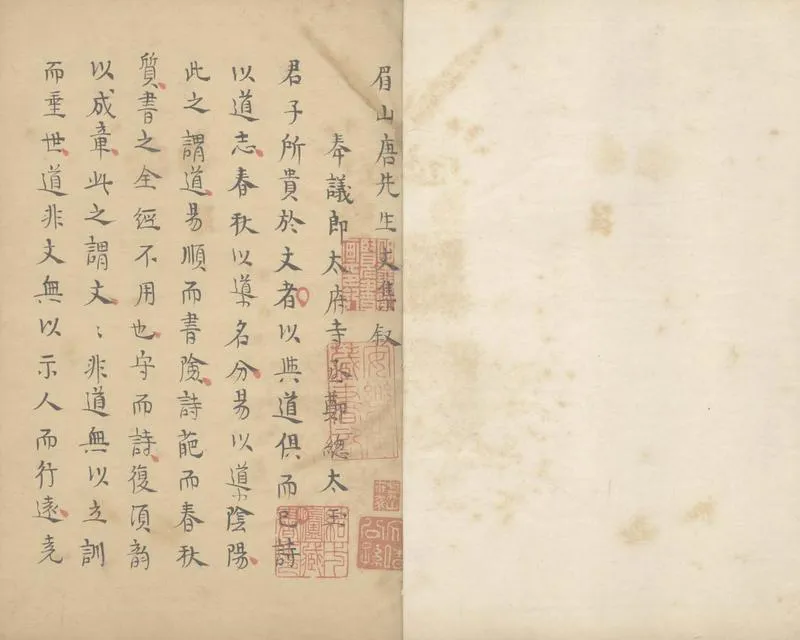 眉山唐先生文集叙
奉議郎太府寺丞鄭總太玉
君子所貴於文者以與道俱而已詩
以道志春秋以導名分易以導陰陽
此之謂道易順而書險詩葩而春秋
質書之全經不用也字而詩復須韵
以成章此之謂文〻非道無以立訓
而垂世道非文無以示人而行遠堯